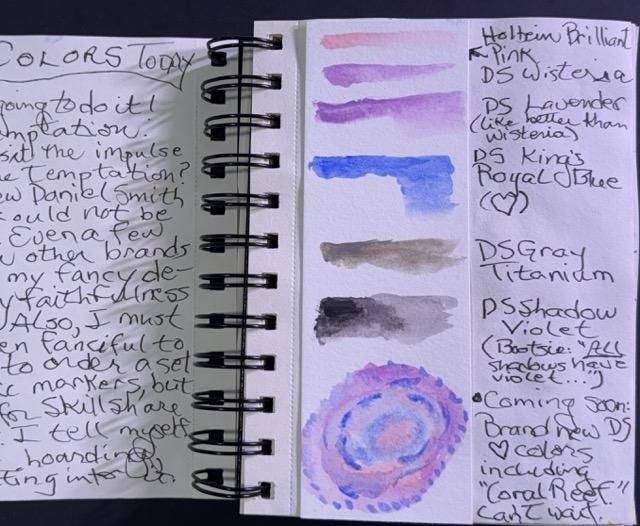 COLORS TODAY
going to do it!
mptation.
sit the impulse
e Temptation?
ew Daniel Smith
could not be
. Even a few
other brands
my fancy de-
y faithfulness
Also, I must
en fanciful to
to order a set
markers, but
for Skillshare
. I tell myself
hoarding
ting into it.
Holbein Brilliant
Pink
DS Wisteria
DS Lavender
(like better than
wisteria)
DS King's
Royal Blue
(♡)
DS Gray
Titanium
DS Shadow
Violet
(Bootsie: "ALL
shadows have
violet...")
• Coming soon:
Brand new DS
♡ colors
including
"Coral Reef."
Can't wait.